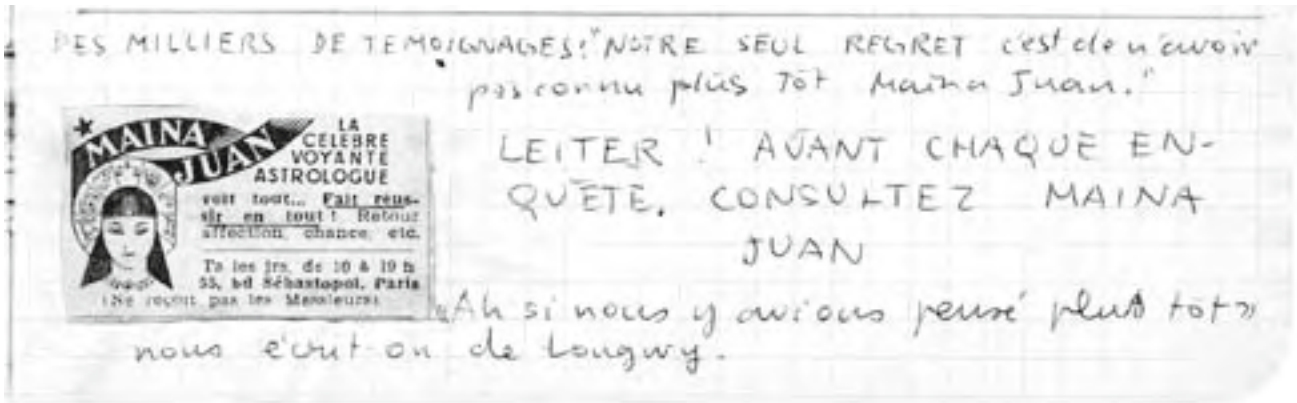 DES MILLIERS DE TEMOIGNAGES: "NOTRE SEUL REGRET c'est de n'avoir
pas connu plus Tôt Maïna Juan."
MAINA
JUAN
LA
CELEBRE
VOYANTE
ASTROLOGUE
voit tout... Fait réus-
sir en tout! Retour
affection, chance, etc.
Ts les jrs, de 10 à 19 h
55, bd Sébastopol, Paris
(Ne reçoit pas les Messieurs)
LEITER ! AVANT CHAQUE EN-
QUÊTE, CONSULTEZ MAINA
JUAN
«Ah si nous y avions pensé plus tot»
nous écrit-on de Longwy.